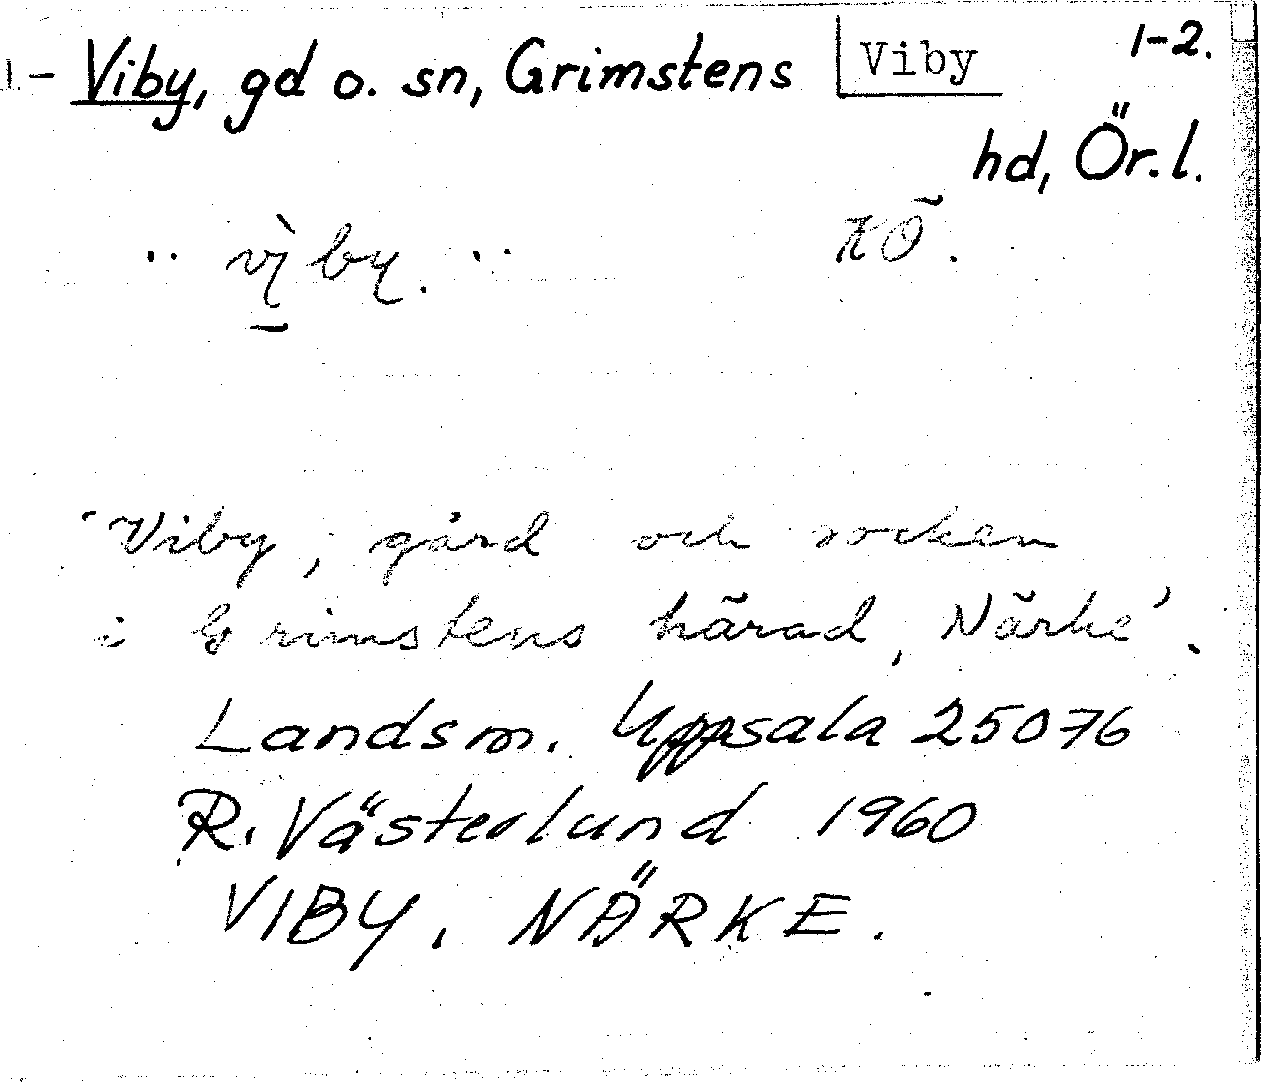 1- Viby, gd o. sn, Grimstens Viby 1-2.
hd, Ör.l.
Viby, gård och socken
i Grimstens härad, Närke'.
Landsm. Uppsala 25076
R. Västerlund 1960
VIBY, NÄRKE.